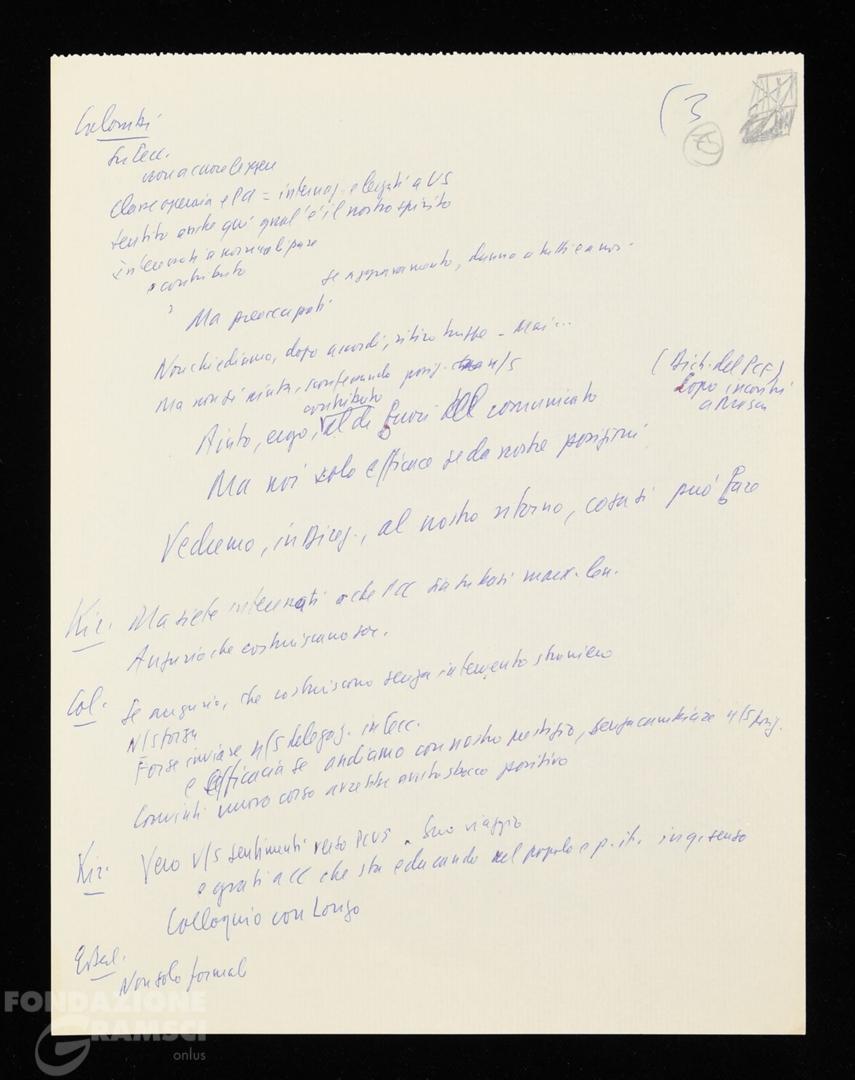 Colombi
(3
75
Su Cecc.
non a cuore leggero
Classe operaia e PCI = internaz. e legati a US
sentito anche qui qual'è il nostro spirito
interessati a normalizzare
contributo
se aggravamento, danno a tutti e a noi.
Ma preoccupati
Non chiediamo, dopo accordi, ritiro truppe - Mai...
Ma non si aiuta, confermando posiz. n/s
(Dich. del PCF)
dopo incontri
a Mosca
contributo
Aiuto, ergo, al di fuori del comunicato
Ma noi solo efficace se da nostre posizioni
Vedremo, in Direz., al nostro ritorno, cosa si può fare
Kir. Ma siete interessati a che PCC sia su basi marx. len.
Augurio che costruiscano soc.
Col. Se auguri, che costruiscono senza intervento straniero
N/S forza
Forse inviare n/s delegaz. in Cecc.
e efficacia se andiamo con nostro prestigio, senza cambiare n/s posiz.
Convinti nuovo corso avrebbe avuto sbocco positivo
Kir. Vero V/S sentimenti verso PCUS. Suo viaggio
e grati a CC che sta educando nel popolo e p. it. in q. senso
Colloquio con Longo
E. Berl.
Non solo formali
FONDAZIONE
GRAMSCI
onlus